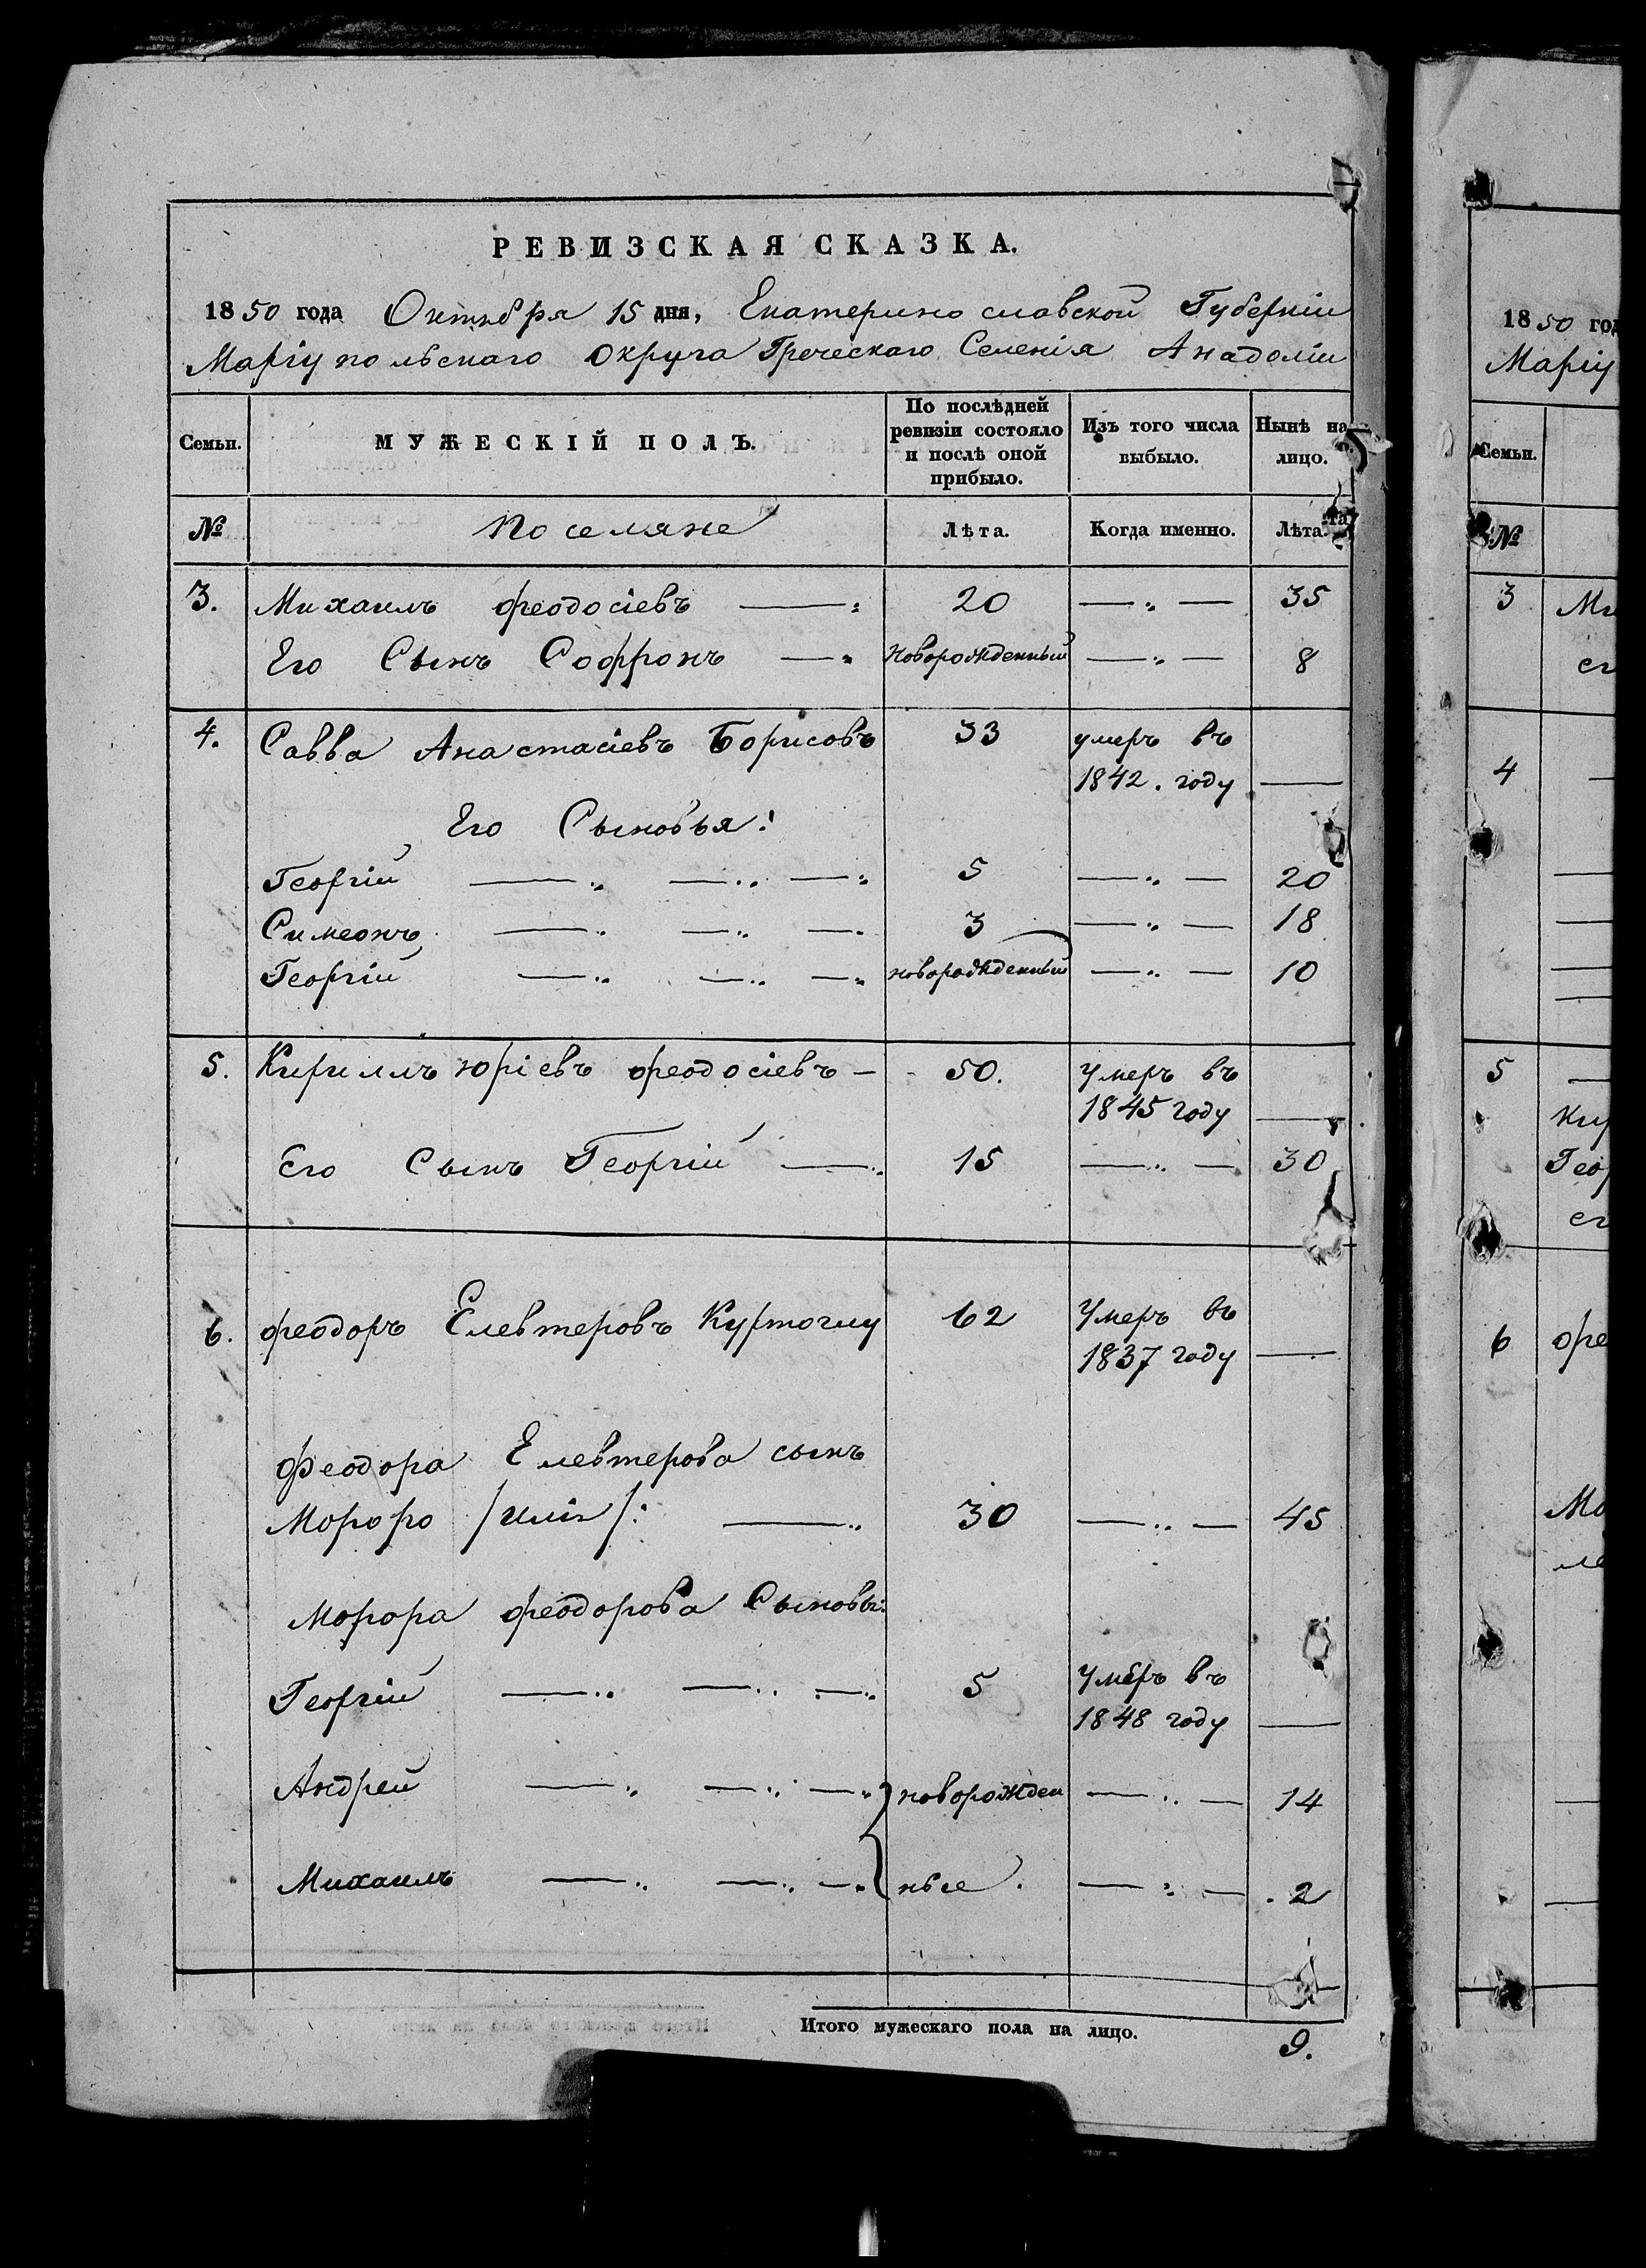 РЕВИЗСКАЯ СКАЗКА.
1850 года Октября 15 дня, Екатеринославской Губерніи
Маріупольскаго Округа Греческаго Селенія Анадоліи
Семьи. МУЖЕСКІЙ ПОЛЪ. По послѣдней ревизіи состояло и послѣ оной прибыло. Изъ того числа выбыло. Нынѣ на лицо.
№ Поселяне Лѣта. Когда именно. Лѣта.
3. Михаилъ Феодосіевъ 20 35
Его Сынъ Софронъ Новорожденный 8
4. Савва Анастасіевъ Борисовъ 33 умеръ въ
1842. году
Его Сыновья:
Георгій 5 20
Симеонъ 3 18
Георгій новорожденный 10
5. Кириллъ Юріевъ Феодосіевъ 50. Умеръ въ
1845 году
Его Сынъ Георгій 15 30
6. Феодоръ Елевтеровъ Куртоглу 62 Умеръ въ
1837 году
Феодора Елевтерова сынъ
Мороро /Илія/: 30 45
Морора Феодорова Сыновья:
Георгій 5 Умеръ въ
1848 году
Андрей новорожден 14
Михаилъ ные. 2
Итого мужескаго пола на лицо. 9.
1850 год
Маріу
Семьи.
№
3 Ми
ег
4
5
Ки
Геор
ег
6 Фе
Мо
ле